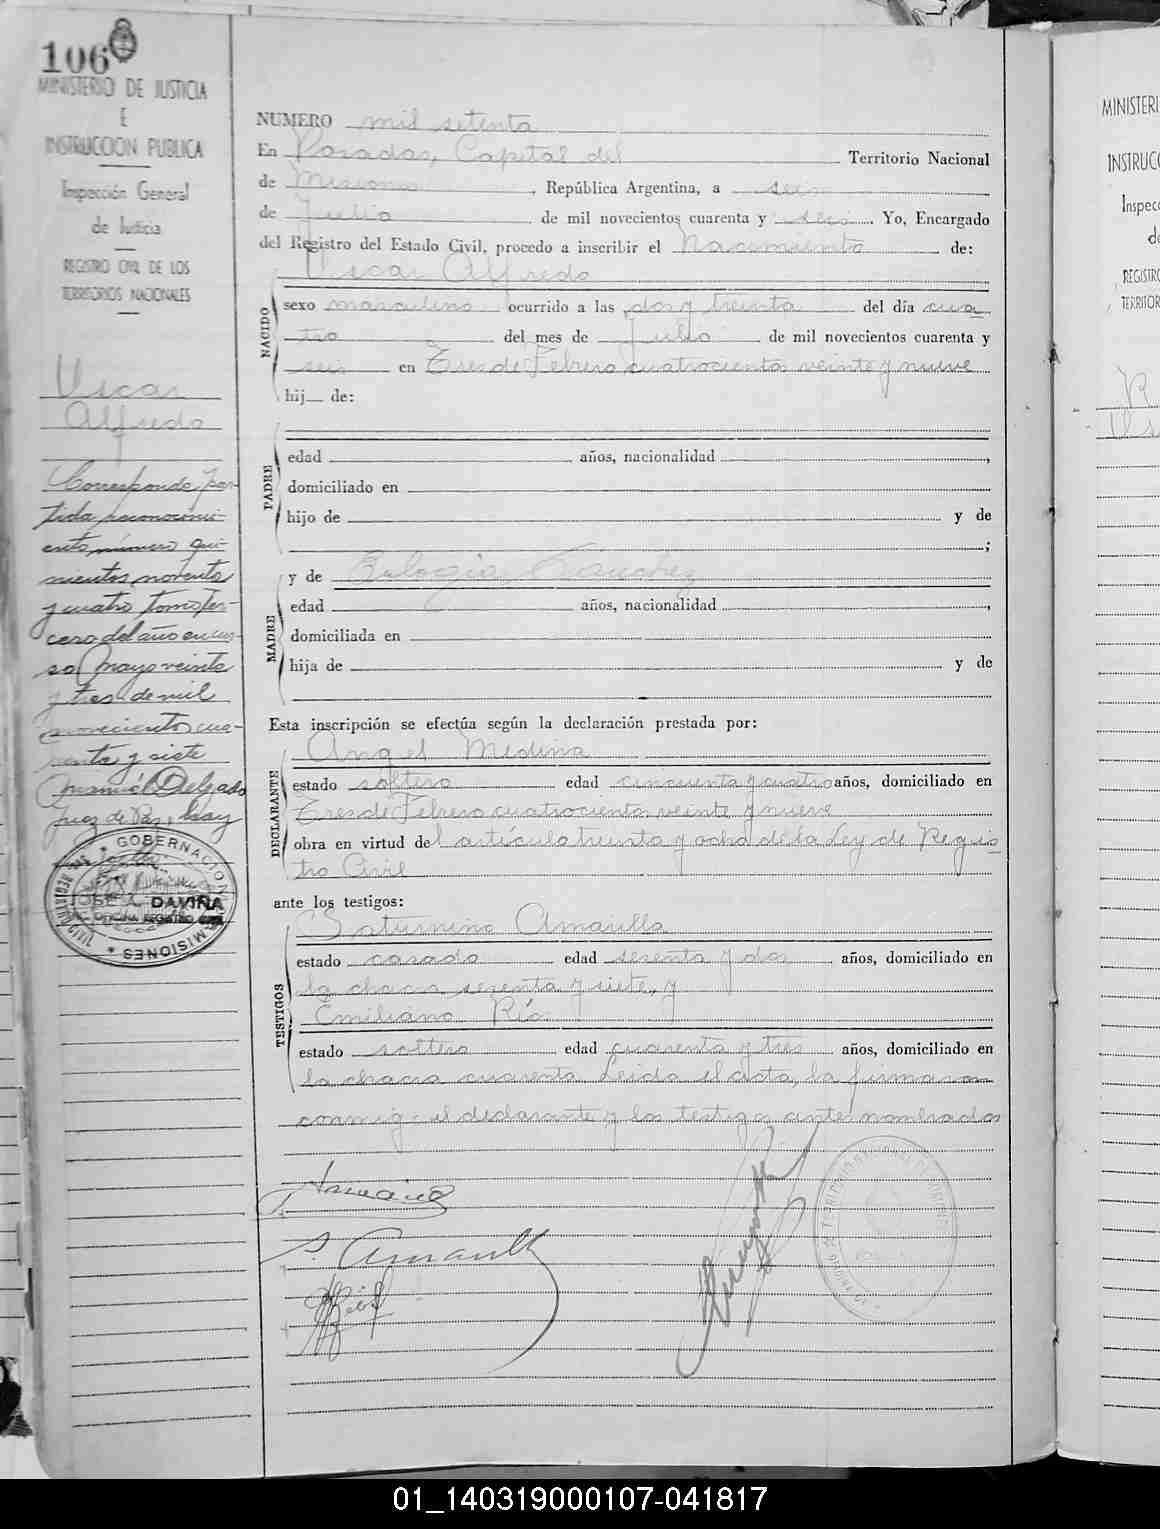 106
MINISTERIO DE JUSTICIA
E
INSTRUCCION PUBLICA
Inspección General
de Justicia
REGISTRO CIVIL DE LOS
TERRITORIOS NACIONALES
Oscar
Alfredo
Corresponde par-
tida reconocimi-
ento número qui-
nientos noventa
y cuatro, tomo ter-
cero del año en cur-
so Mayo veinte
y tres de mil
novecientos cua-
renta y siete
Manuel Delgado
Juez de Paz. Hay
GOBERNACION MISIONES
JOSE A. DAVIÑA
NUMERO mil setenta
En Posadas, Capital del Territorio Nacional
de Misiones, República Argentina, a seis
de Julio de mil novecientos cuarenta y seis. Yo, Encargado
del Registro del Estado Civil, procedo a inscribir el Nacimiento de:
Oscar Alfredo
NACIDO
sexo masculino ocurrido a las dos y treinta del día cua-
tro del mes de Julio de mil novecientos cuarenta y
seis en Tres de Febrero cuatrocientos veinte y nueve
hij de:
PADRE
edad años, nacionalidad ,
domiciliado en
hijo de y de
;
MADRE
y de Eulogia Sanchez
edad años, nacionalidad ,
domiciliada en
hija de y de
Esta inscripción se efectúa según la declaración prestada por:
DECLARANTE
Angel Medina
estado soltero edad cincuenta y cuatro años, domiciliado en
Tres de Febrero cuatrocientos veinte y nueve
obra en virtud del artículo treinta y ocho de la Ley de Regis-
tro Civil
ante los testigos:
TESTIGOS
Saturnino Amarilla
estado casado edad sesenta y dos años, domiciliado en
la chacra sesenta y siete, y
Emiliano Ríos
estado soltero edad cuarenta y tres años, domiciliado en
la chacra cuarenta. Leida el acta, la firmaron
conmigo el declarante y los testigos ante nombrados
S. Amarilla
MINISTERI
INSTRUCC
Inspec
de
REGISTRO
TERRITOR
01_140319000107-041817